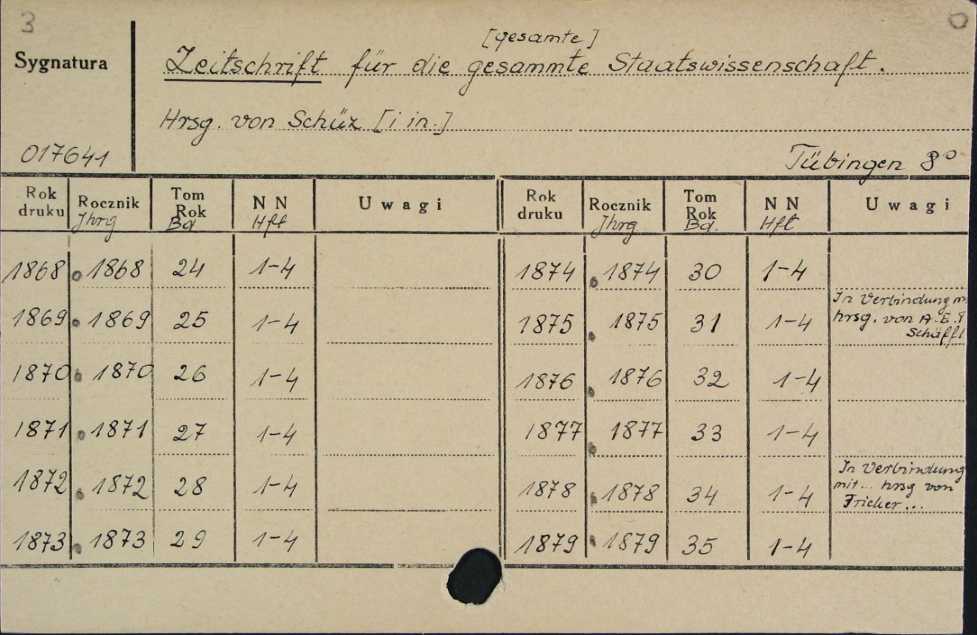 3
[gesamte]
Sygnatura
Zeitschrift für die gesammte Staatswissenschaft.
Hrsg. von Schüz [i in.]
017641
Tübingen 8°
Rok druku Rocznik Jhrg Tom Rok Bd NN Hft Uwagi Rok druku Rocznik Jhrg Tom Rok Bd. NN Hft Uwagi
1868 1868 24 1-4 1874 1874 30 1-4
1869 1869 25 1-4 1875 1875 31 1-4 In Verbindung hrsg. von A.E.F Schäffl
1870 1870 26 1-4 1876 1876 32 1-4
1871 1871 27 1-4 1877 1877 33 1-4
1872 1872 28 1-4 1878 1878 34 1-4 In Verbindung mit... hrsg von Fricker...
1873 1873 29 1-4 1879 1879 35 1-4